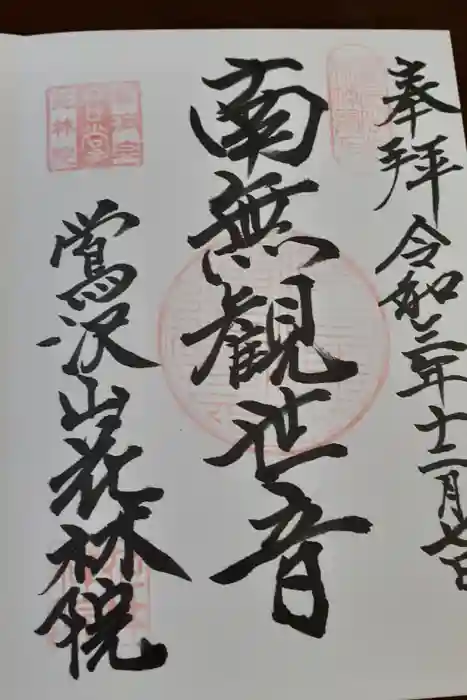 奉拝
令和三年十二月七日
南無観世音
鴬沢山花林院